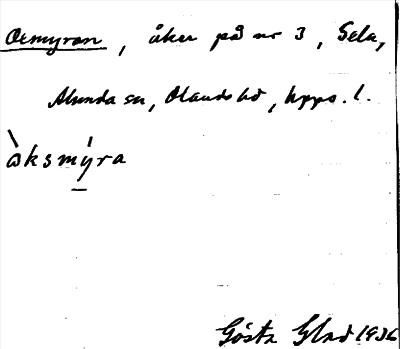 Oxmyran, åker på nr 3, Sela,
Alunda sn, Olands hd, Upps. l.
òksmýra
Gösta Glad 1936